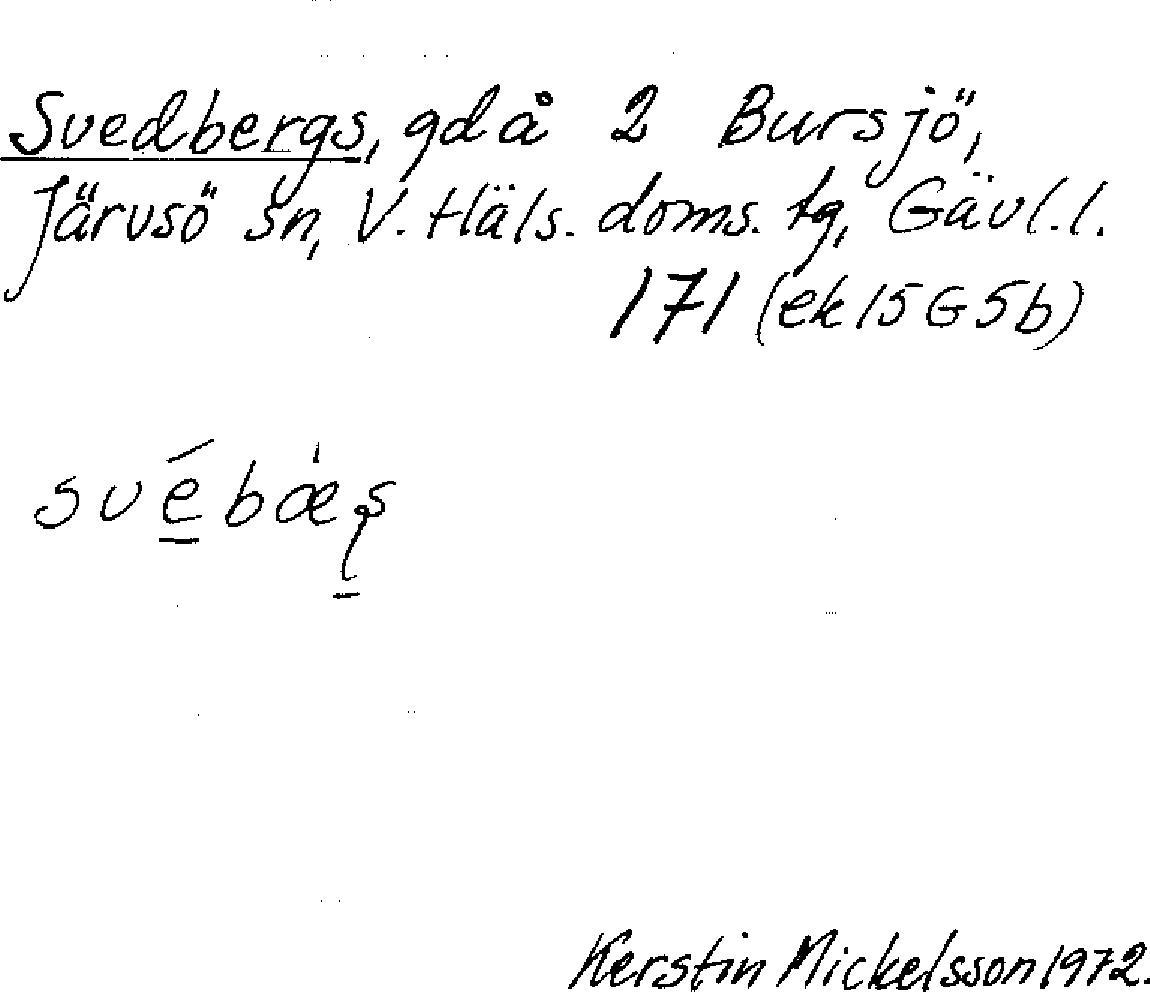 Svedbergs, gd å 2 Bursjö,
Järvsö sn, V. Häls. doms. tg, Gävl. l.
171 (ek 15G5b)
Kerstin Mickelsson 1972.